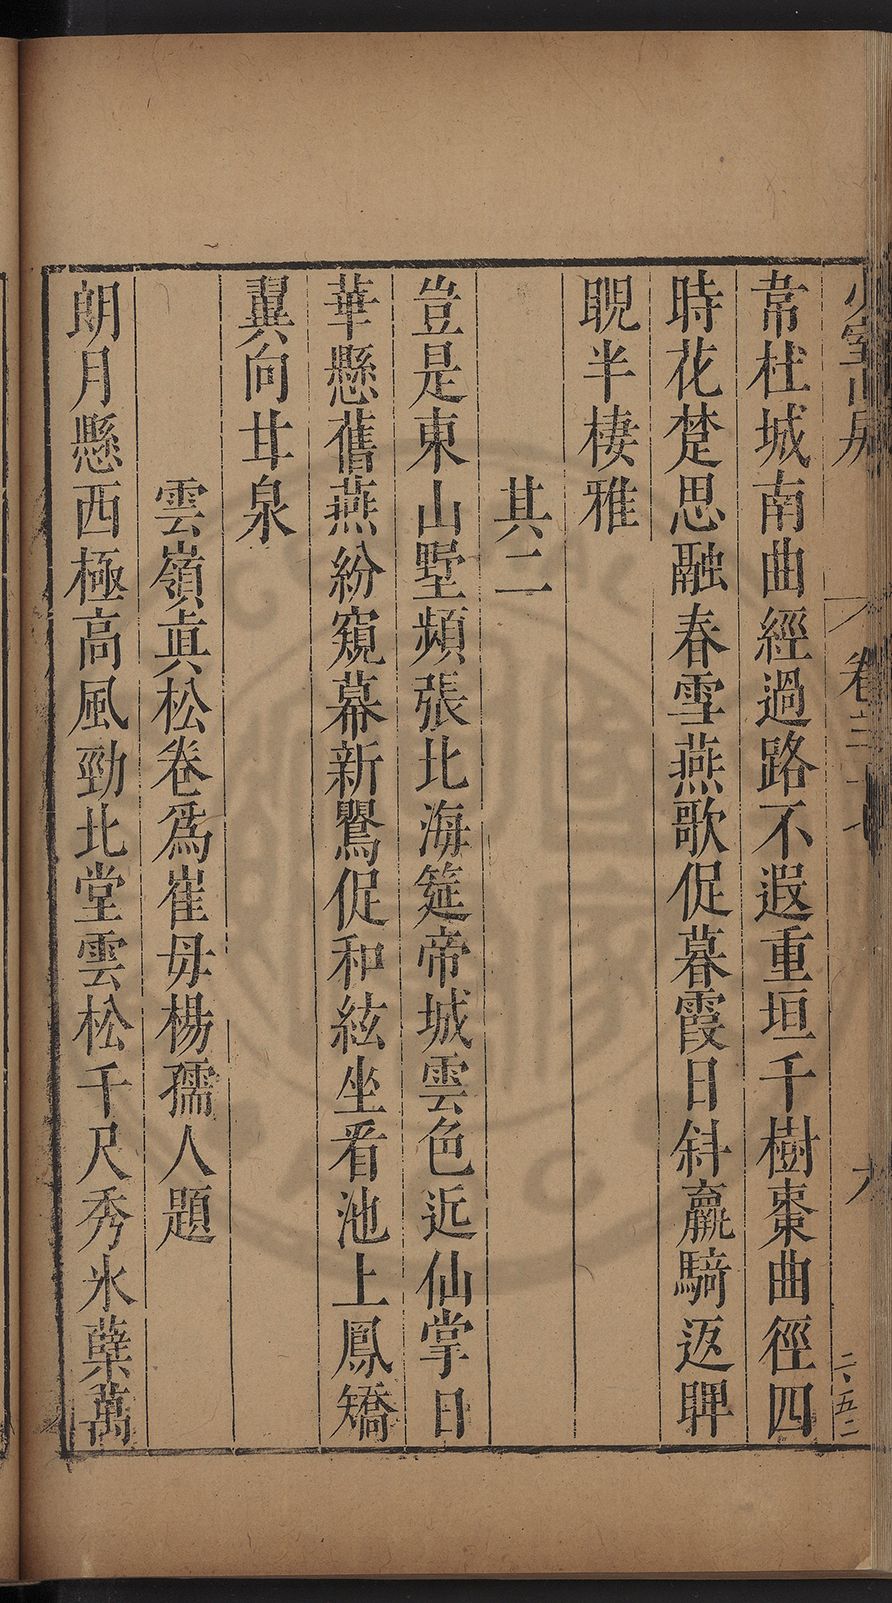 少室山房
卷三十七
九
二、五二
韋杜城南曲經過路不遐重垣千樹棗曲徑四
時花楚思融春雪燕歌促暮霞日斜羸騎返睥
睨半棲雅
其二
豈是東山墅頻張北海筵帝城雲色近仙掌日
華懸舊燕紛窺幕新鶯促和絃坐看池上鳳矯
翼向甘泉
雲嶺真松卷爲崔毋楊孺人題
朗月懸西極高風勁北堂雲松千尺秀氷蘗萬